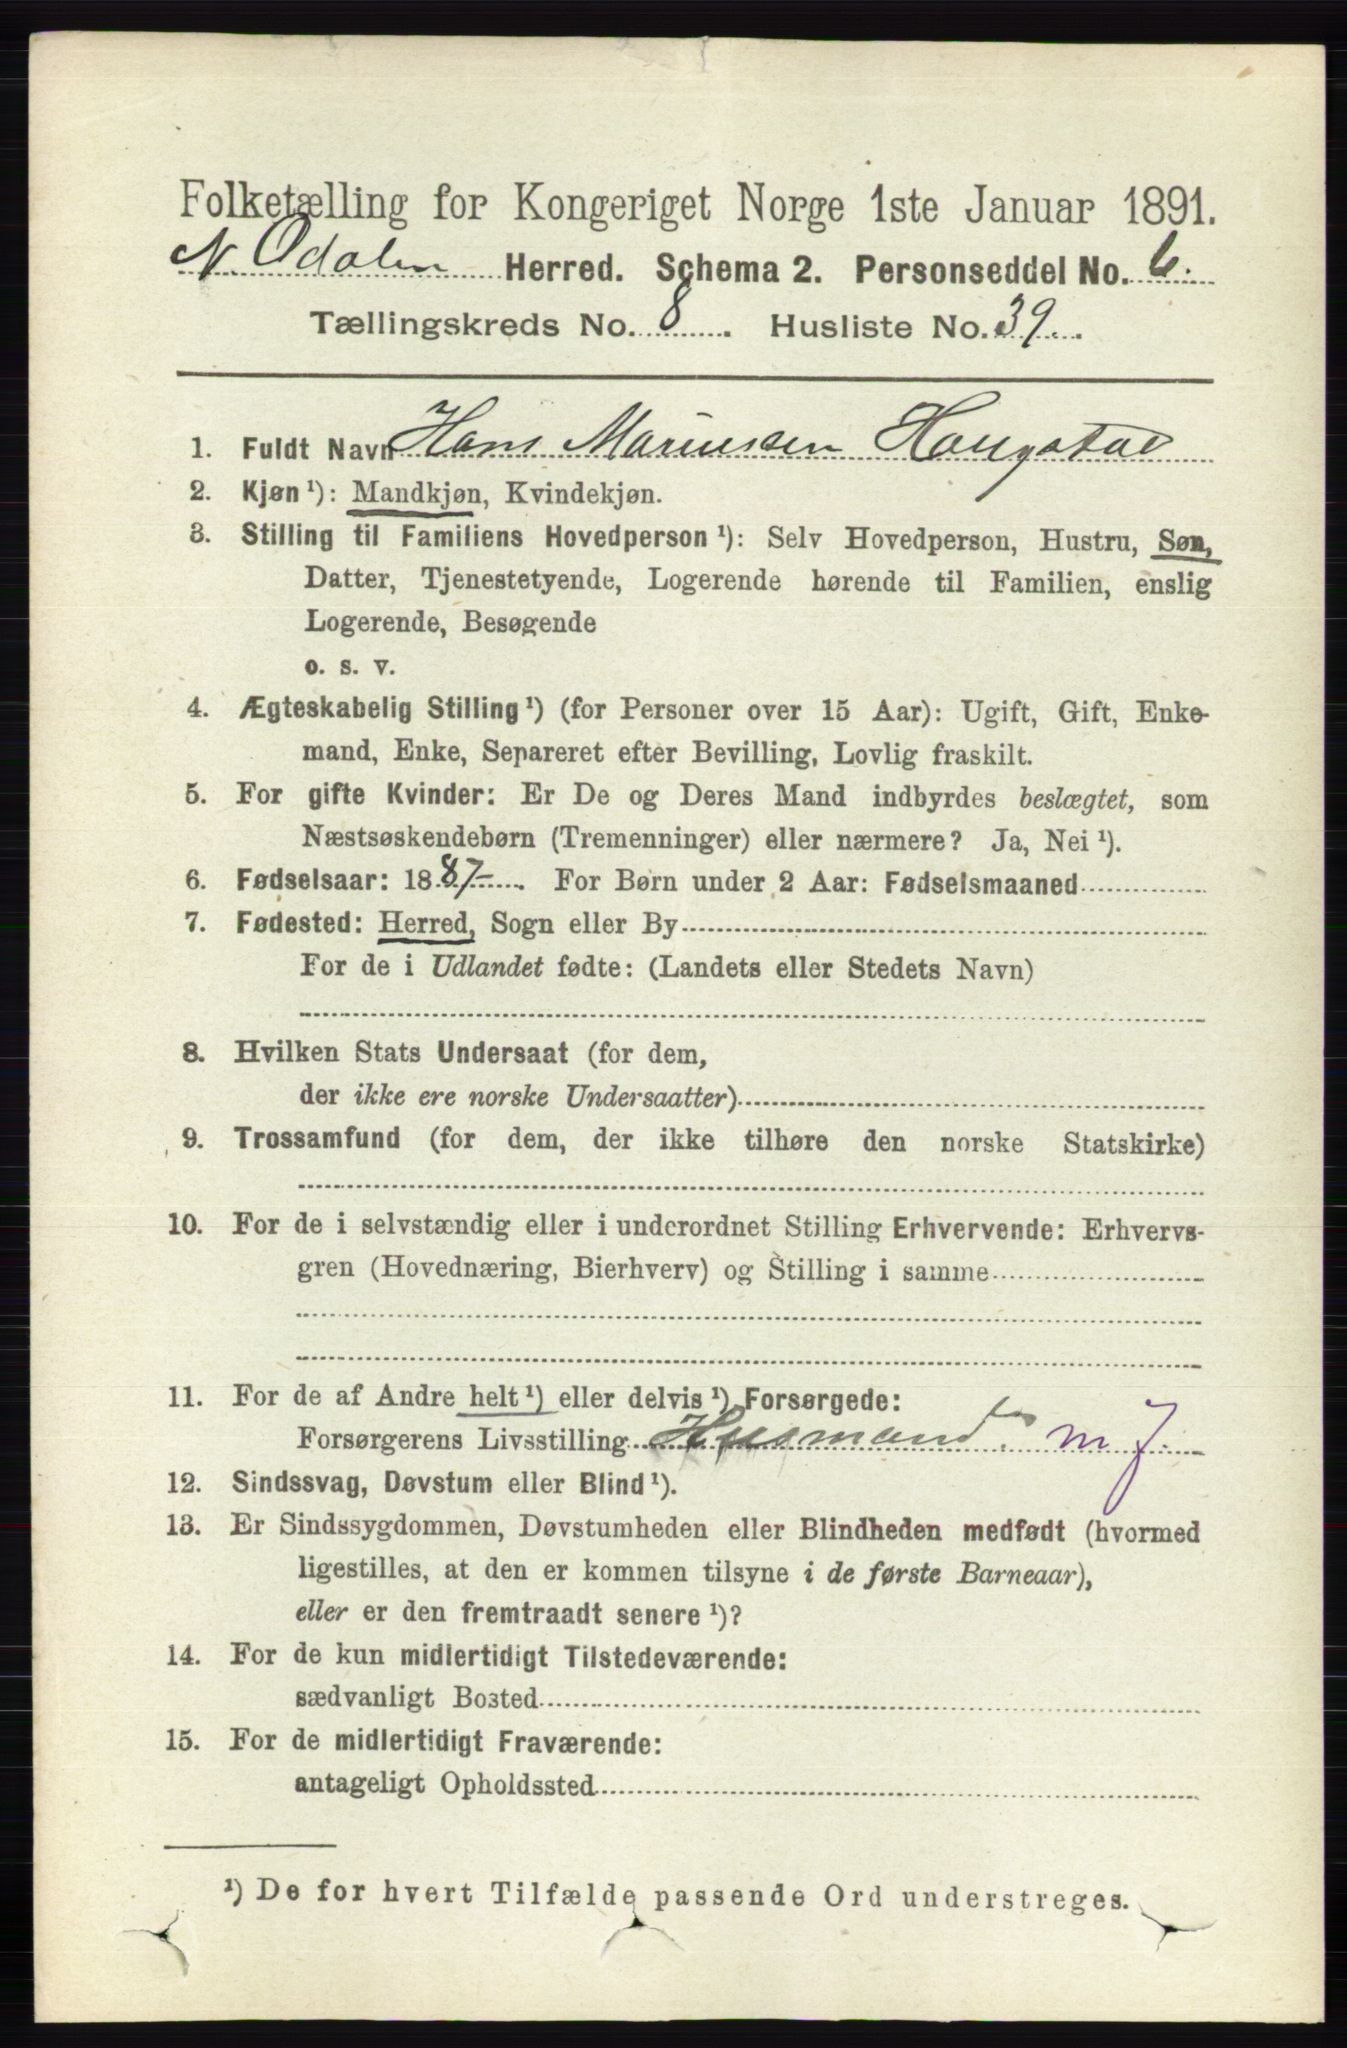 Folketælling for Kongeriget Norge 1ste Januar 1891.
N. Odalen Herred. Schema 2. Personseddel No. 6.
Tællingskreds No. 8. Husliste No. 39.
1. Fuldt Navn Hans Mariussen Haugstad
2. Kjøn ¹): Mandkjøn, Kvindekjøn.
3. Stilling til Familiens Hovedperson ¹): Selv Hovedperson, Hustru, Søn,
Datter, Tjenestetyende, Logerende hørende til Familien, enslig
Logerende, Besøgende
o. s. v.
4. Ægteskabelig Stilling ¹) (for Personer over 15 Aar): Ugift, Gift, Enke-
mand, Enke, Separeret efter Bevilling, Lovlig fraskilt.
5. For gifte Kvinder: Er De og Deres Mand indbyrdes beslægtet, som
Næstsøskendebørn (Tremenninger) eller nærmere? Ja, Nei ¹).
6. Fødselsaar: 1887. For Børn under 2 Aar: Fødselsmaaned
7. Fødested: Herred, Sogn eller By
For de i Udlandet fødte: (Landets eller Stedets Navn)
8. Hvilken Stats Undersaat (for dem,
der ikke ere norske Undersaatter)
9. Trossamfund (for dem, der ikke tilhøre den norske Statskirke)
10. For de i selvstændig eller i underordnet Stilling Erhvervende: Erhvervs-
gren (Hovednæring, Bierhverv) og Stilling i samme
11. For de af Andre helt ¹) eller delvis ¹) Forsørgede:
Forsørgerens Livsstilling Husmand m J.
12. Sindssvag, Døvstum eller Blind ¹).
13. Er Sindssygdommen, Døvstumheden eller Blindheden medfødt (hvormed
ligestilles, at den er kommen tilsyne i de første Barneaar),
eller er den fremtraadt senere ¹)?
14. For de kun midlertidigt Tilstedeværende:
sædvanligt Bosted
15. For de midlertidigt Fraværende:
antageligt Opholdssted
¹) De for hvert Tilfælde passende Ord understreges.